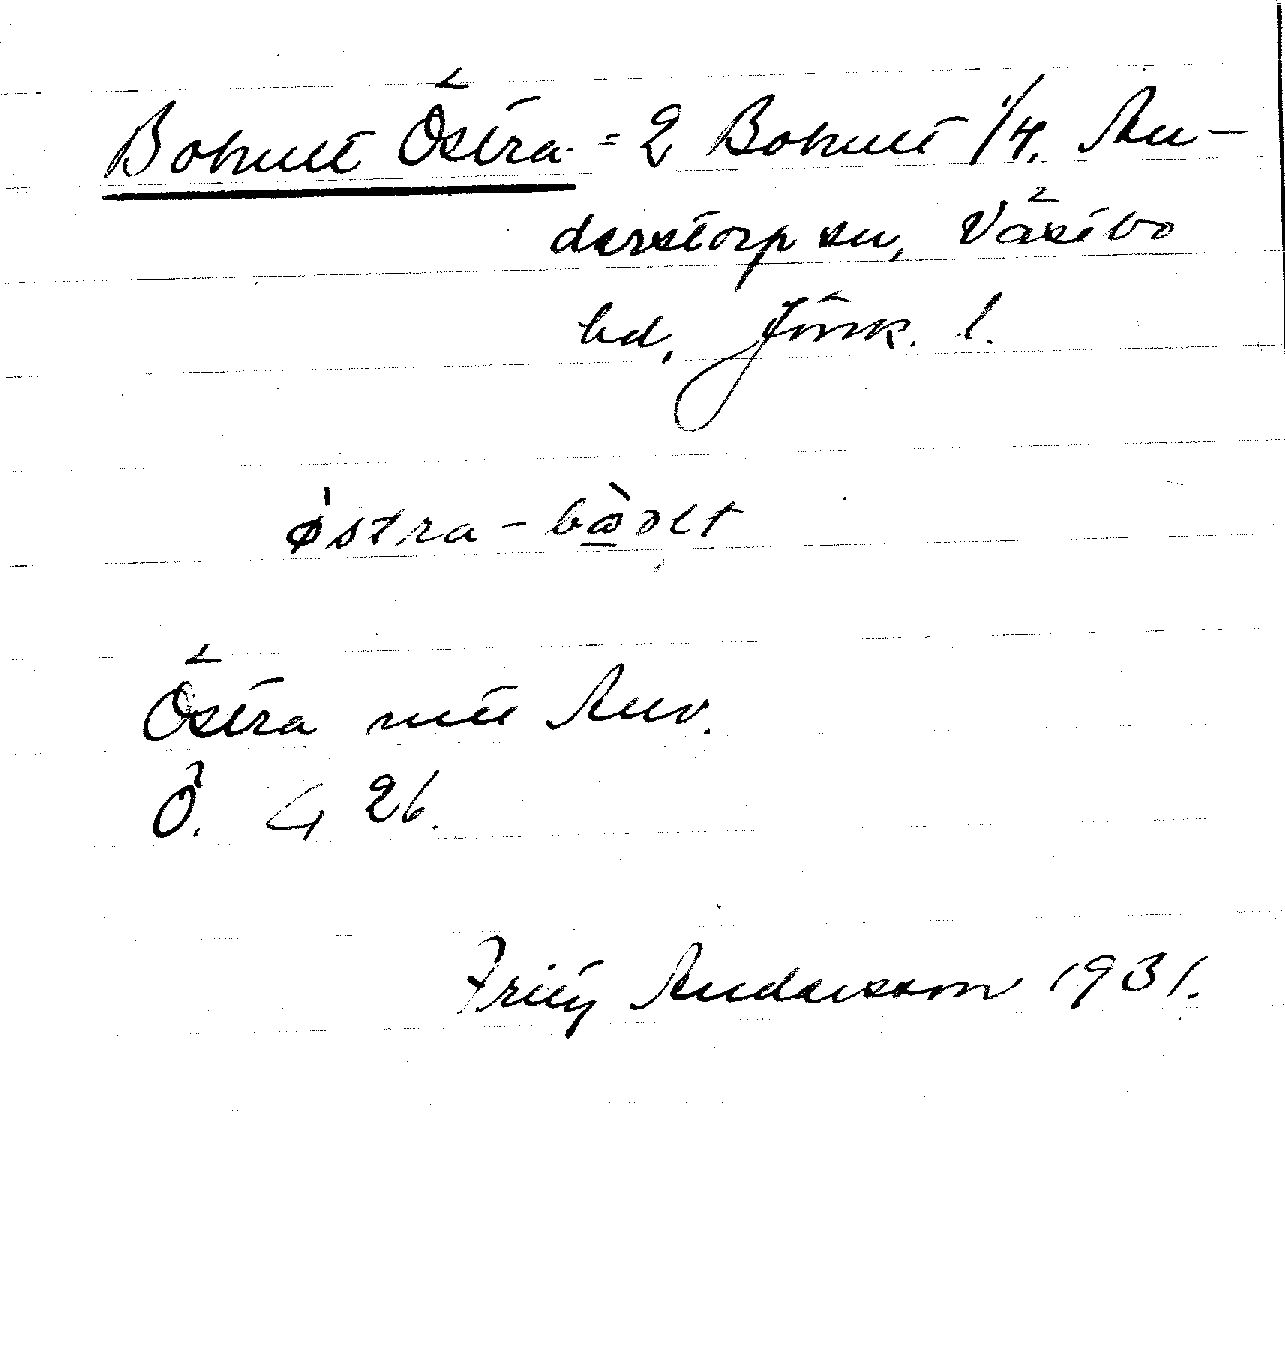 Bohult Östra = 2 Bohult 1/4. An-
derstorp sn, Västbo
hd, Jönk. l.
östra-
Östra
Ö. G 26.
Fritz Andersson 1931.